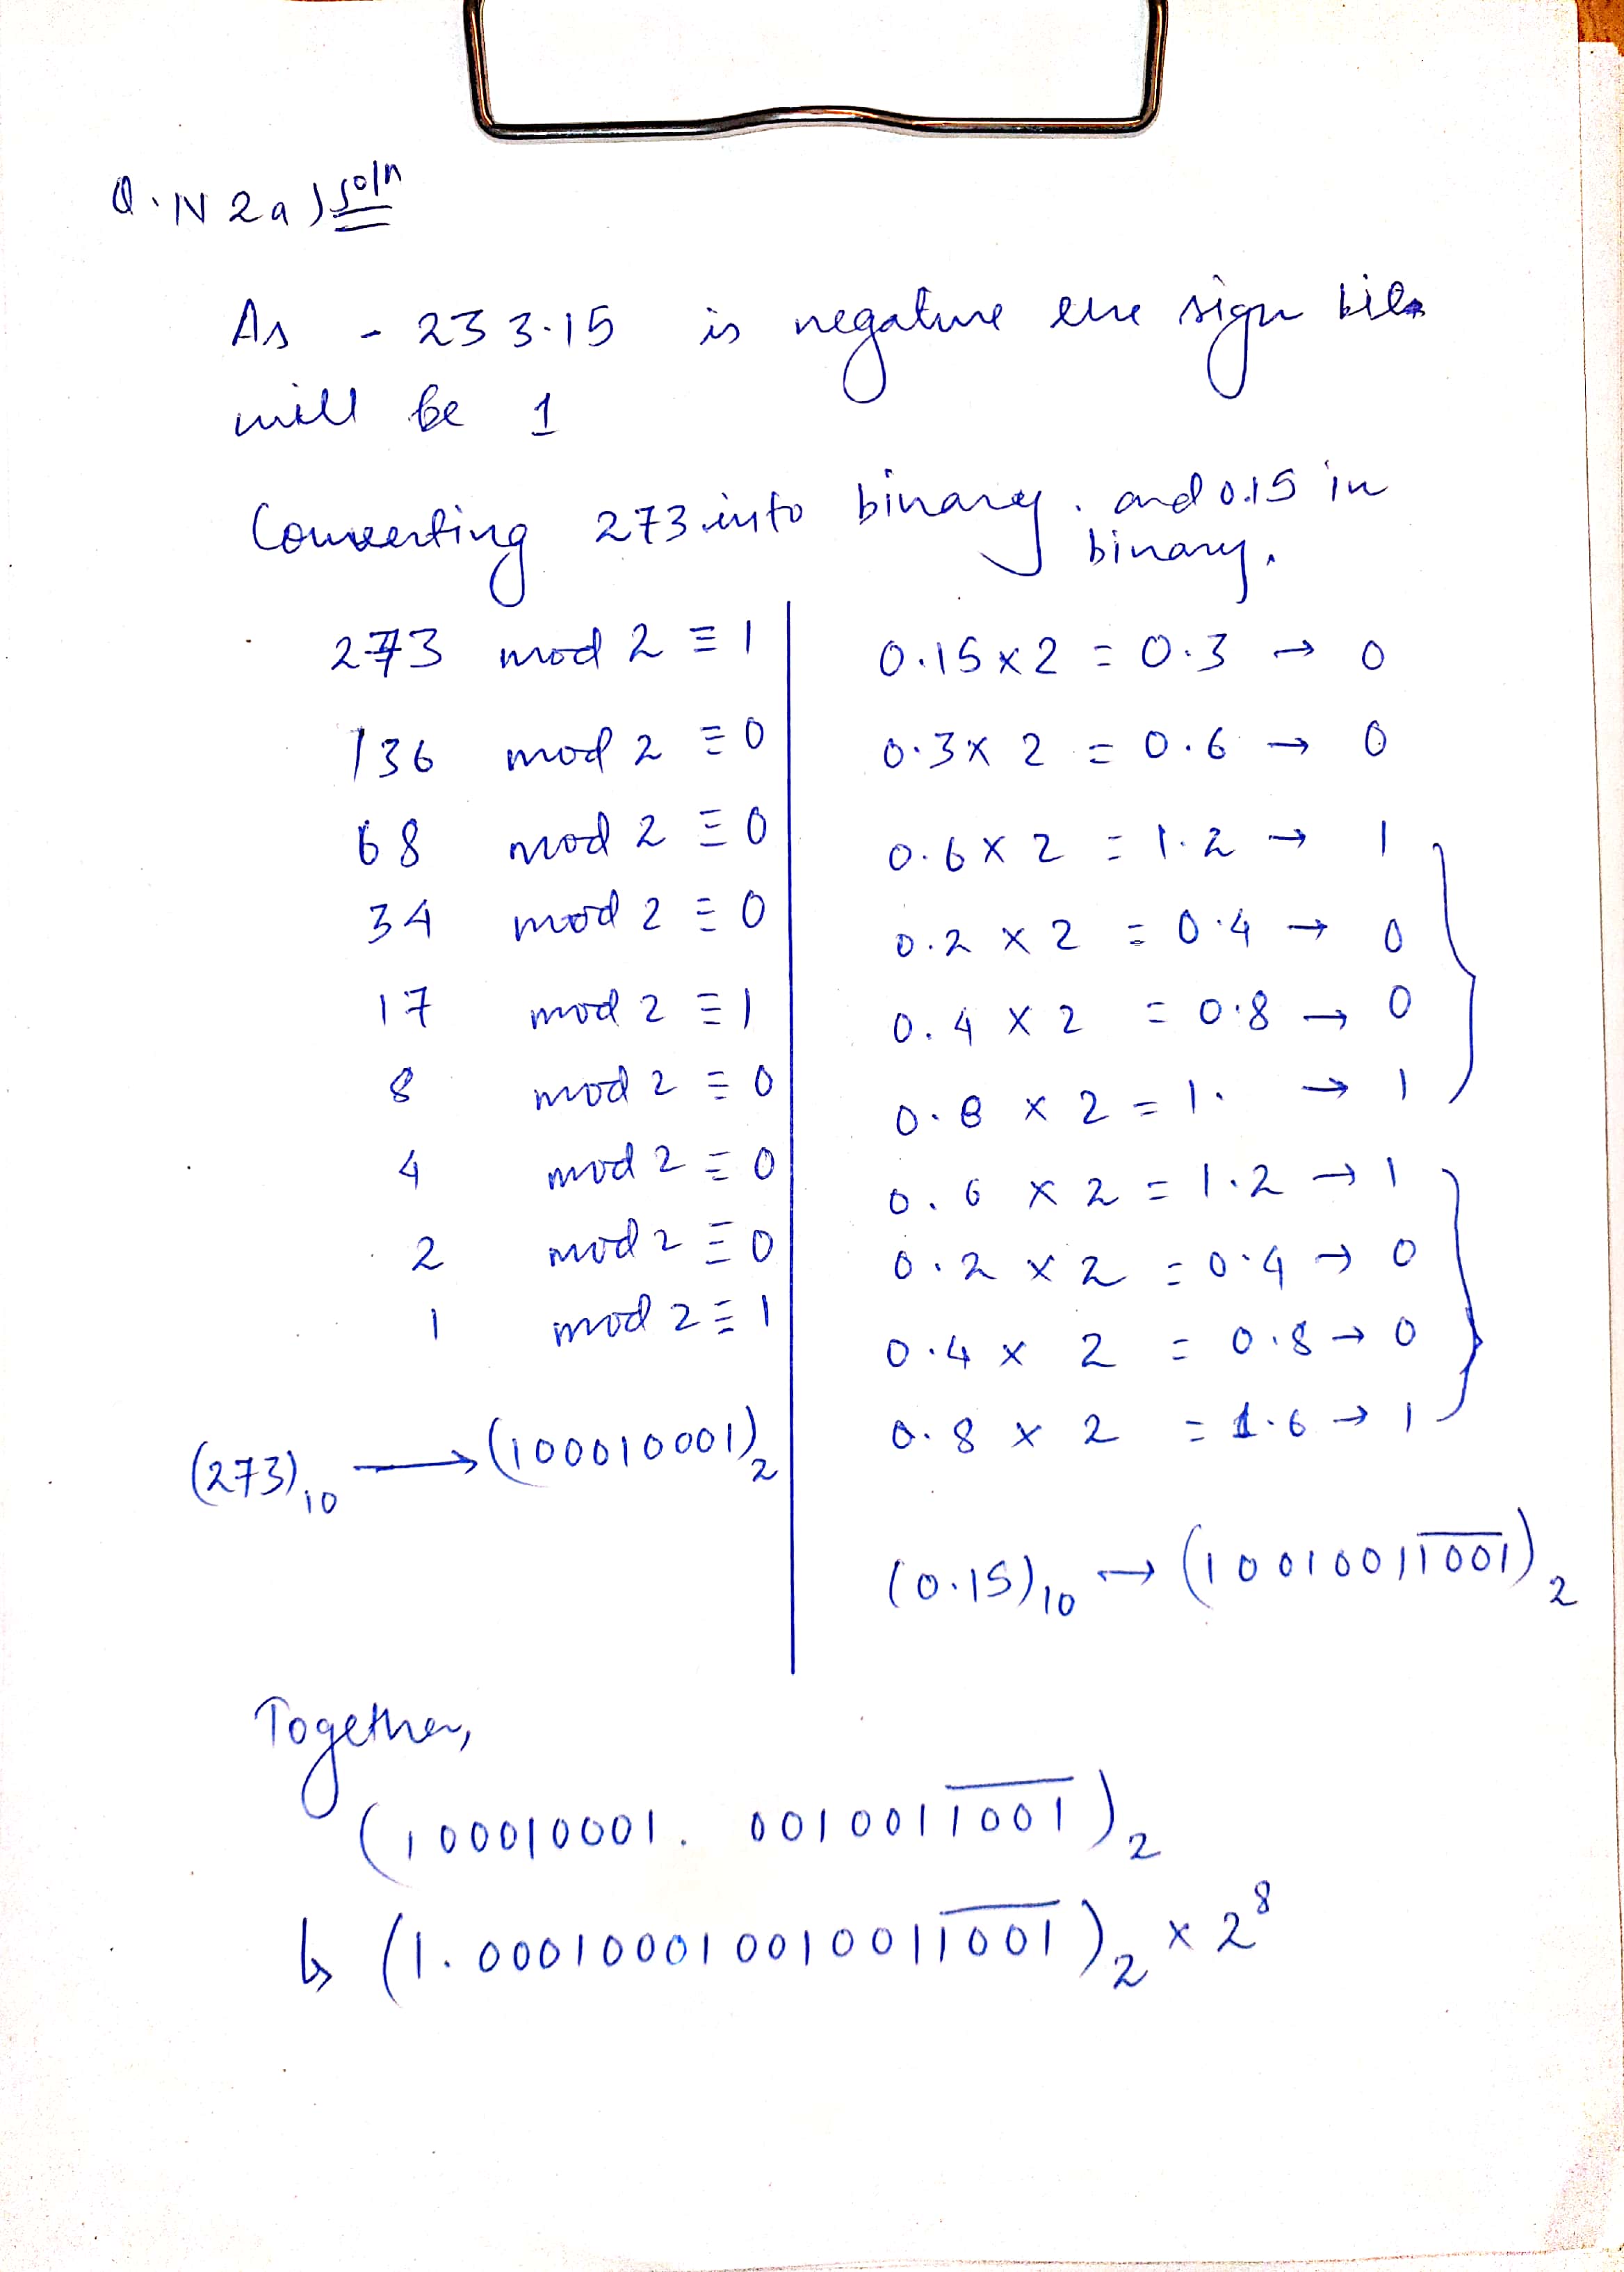 Q.N 2a) soln
As - 233.15 is negative the sign bits
will be 1
Converting 273 into binary. and 0.15 in
binary.
273 mod 2 ≡ 1
136 mod 2 ≡ 0
68 mod 2 ≡ 0
34 mod 2 ≡ 0
17 mod 2 ≡ 1
8 mod 2 ≡ 0
4 mod 2 ≡ 0
2 mod 2 ≡ 0
1 mod 2 ≡ 1
(273)₁₀ → (100010001)₂
0.15 x 2 = 0.3 → 0
0.3 x 2 = 0.6 → 0
0.6 x 2 = 1.2 → 1
0.2 x 2 = 0.4 → 0
0.4 x 2 = 0.8 → 0
0.8 x 2 = 1. → 1
0.6 x 2 = 1.2 → 1
0.2 x 2 = 0.4 → 0
0.4 x 2 = 0.8 → 0
0.8 x 2 = 1.6 → 1
(0.15)₁₀ → (10010011̅0̅0̅1̅)₂
Together,
(100010001. 0010011̅0̅0̅1̅)₂
↳ (1.000100010010011̅0̅0̅1̅)₂ x 2⁸